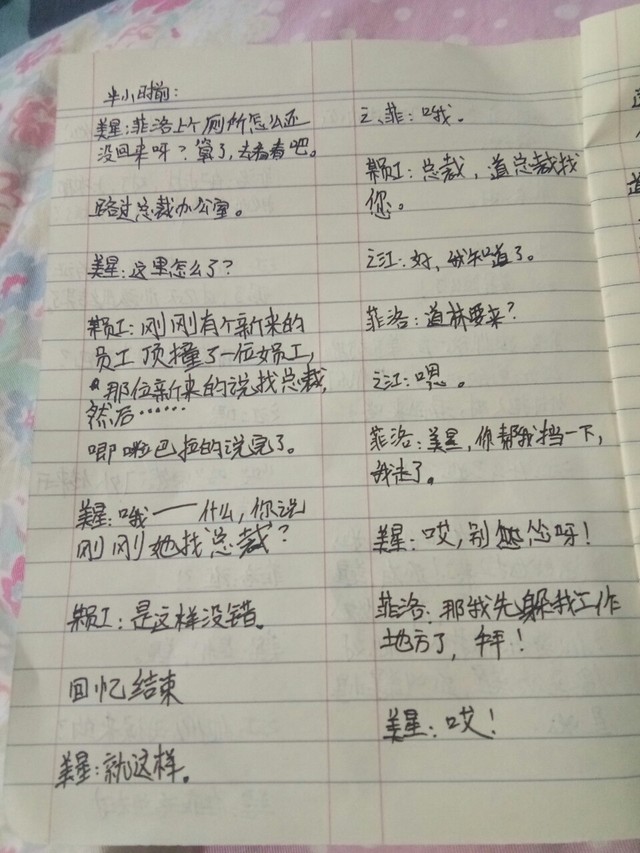 半小时前:
美星:菲洛上个厕所怎么还
没回来呀?算了,去看看吧。
路过总裁办公室。
美星:这里怎么了?
某员工:刚刚有个新来的
员工顶撞了一位女员工,
那位新来的说找总裁,
然后……
唧啦巴拉的说完了。
美星:哦——什么,你说
刚刚她找总裁?
某员工:是这样没错。
回忆结束
美星:就这样。
之、菲:哦。
某员工:总裁,道总裁找
您。
之江:好,我知道了。
菲洛:道林要来?
之江:嗯。
菲洛:美星,你帮我挡一下,
我走了。
美星:哎,别怂呀!
菲洛:那我先躲我工作
地方了,拜!
美星:哎!